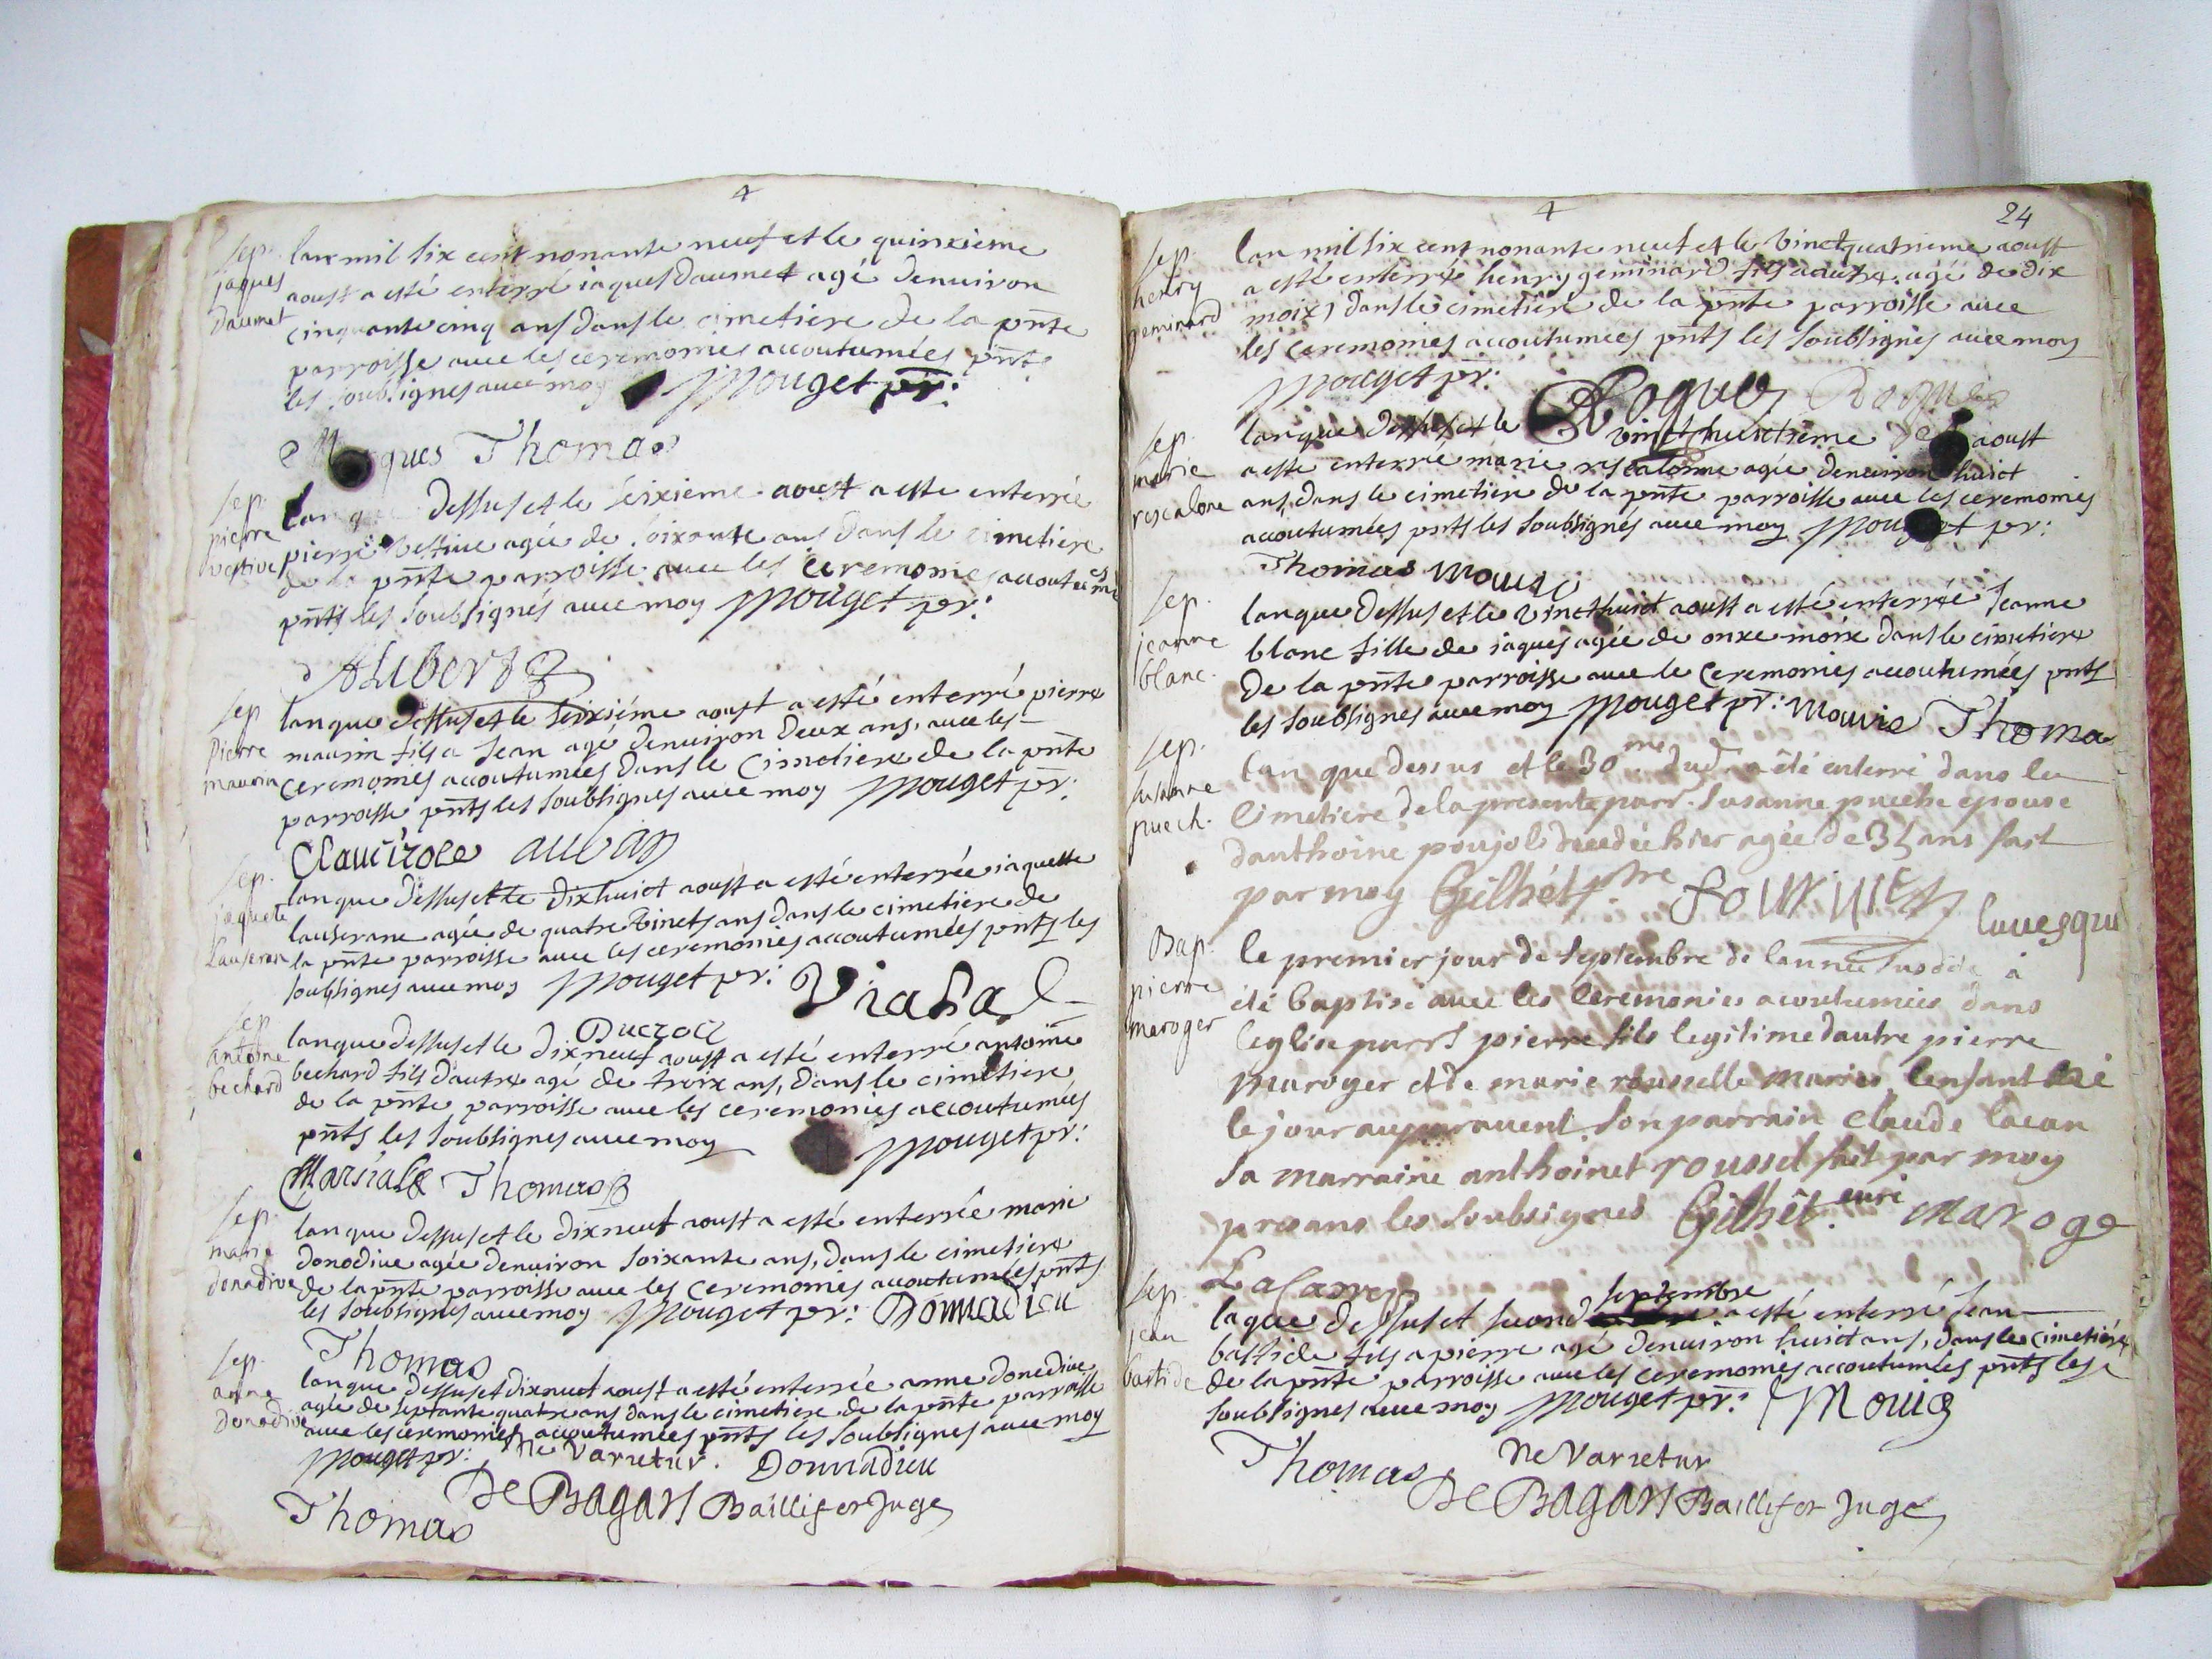 4
sep.
jaques
daumet
lan mil six cent nonante neuf et le quinxieme
aoust a esté enterré iaques daumet agé denuiron
cinquante cinq ans dans le cimetiere de la pnte
parroisse auec les ceremonies accoutumées pnts
les soubsignes auec moy Mouget pr:
Thomas
sep.
pierre
vestive
lan que dessus et le seixieme aoust a este enterrée
pierre vestiue agée de soixante ans dans le cimetiere
de la pnte parroisse auec les ceremonies accoutumées
pnts les soubsignés auec moy Mouget pr:
Alibert
sep
pierre
maurin
lan que dessus et le seixiéme aoust a esté enterré pierre
maurin fils a Jean agé denuiron deux ans, auec les
ceremonies accoutumées dans le cimetiere de la pnte
parroisse pnts les soubsignes auec moy Mouget pr:
Clauzirole
sep.
jaquete
Lauseran
lan que dessus et le dixhuict aoust a esté enterrée iaquette
lauserane agée de quatre vincts ans dans le cimetiere de
la pnte parroisse auec les ceremonies accoutumées pnts les
soubsignes auec moy Mouget pr: Viala
Ducros
sep
antoine
bechard
lan que dessus et le dixneuf aoust a esté enterré antoine
bechard fils dautre agé de troix ans, dans le cimetiere
de la pnte parroisse auec les ceremonies accoutumées
pnts les soubsignes auec moy Mouget pr:
Thomas
sep
marie
donadive
lan que dessus et le dixneuf aoust a esté enterrée marie
donodiue agée denuiron soixante ans, dans le cimetiere
de la pnte parroisse auec les ceremonies accoutumées pnts
les soubsignes auec moy Mouget pr: Donnadieu
Thomas
sep.
anne
donadive
lan que dessus et dixneuf aoust a esté enterrée anne donediue
agée de septante quatre ans dans le cimetiere de la pnte parroisse
auec les ceremonies accoutumées pnts les soubsignes auec moy
Mouget pr: Ne Varietur. Donnadieu
De Bagars Baillif et Juge
Thomas
4
24
sep.
henry
geminard
lan mil six cent nonante neuf et le vinctquatrieme aoust
a esté enterré henry geminard fils dautre agé de dix
moix, dans le cimetiere de la pnte parroisse auec
les ceremonies accoutumées pnts les soubsignés auec moy
Mouget pr: Roques
sep.
marie
rescalone
lan que dessus et le vinct huictieme aoust
a este enterrée marie rescalonne agée denuiron huict
ans, dans le cimetiere de la pnte parroisse auec les ceremonies
accoutumées pnts les soubsignés auec moy Mouget pr:
Thomas
sep.
jeanne
blanc.
lan que dessus et le vinct huict aoust a esté enterrée Jeanne
blanc fille de iaques agée de onxe moix dans le cimetiere
de la pnte parroisse auec le ceremonies accoutumées pnts
les soubsignes auec moy Mouget pr: Thomas
sep.
susanne
puech.
Lan que dessus et le 30me dud. a été enterré dans le
cimetiere de la presente parr. Susanne pueche epouse
danthoine poujol decedée hier agée de ans fait
par moy Gilhet ptre
Bap.
pierre
maroger
le premier jour de septembre de lannée susdite à
été baptisé auec les ceremonies acoutumées dans
leglise parrl pierre fils legitime dautre pierre
maroger et de marie rousselle maries lenfant né
le jour auparauent. son parrain claude lacan
sa marraine anthoinet roussel fait par moy
presans les soubsignes Gilhet. curé Maroge
sep.
jean
bastide
septembre
la que dessus et second a esté enterré Jean
bastide fils a pierre agé denuiron huict ans, dans le cimetiere
de la pnte parroisse auec les ceremonies accoutumées pnts les
soubsignes auec moy Mouget pr:
Thomas Ne Varietur
De Bagars Baillif et Juge